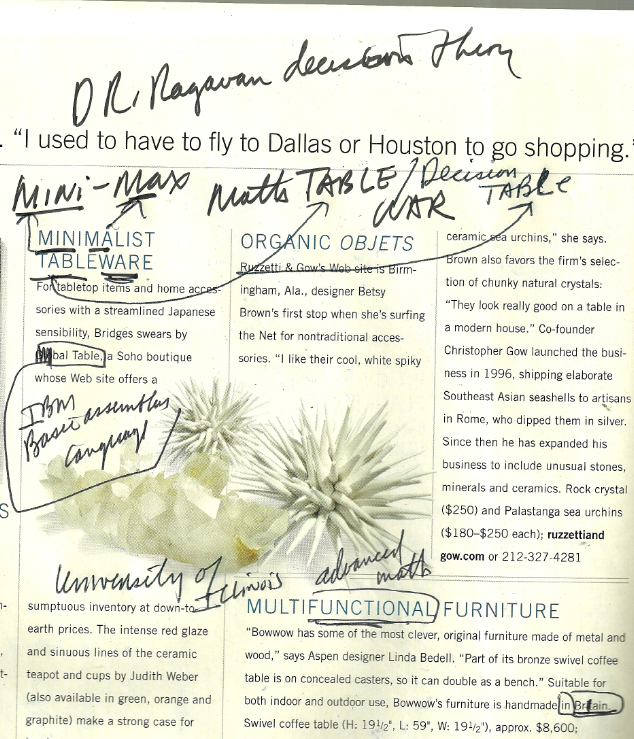 DR. Ragavan decision Theory
. "I used to have to fly to Dallas or Houston to go shopping."
MINI-MAX Maths TABLE / Decision TABLE
WAR
MINIMALIST
TABLEWARE
For tabletop items and home acces-
sories with a streamlined Japanese
sensibility, Bridges swears by
bal Table, a Soho boutique
whose Web site offers a
IBM
Basic assembler
Language
ORGANIC OBJETS
Ruzzetti & Gow's Web site is Birm-
ingham, Ala., designer Betsy
Brown's first stop when she's surfing
the Net for nontraditional acces-
sories. "I like their cool, white spiky
ceramic sea urchins," she says.
Brown also favors the firm's selec-
tion of chunky natural crystals:
"They look really good on a table in
a modern house." Co-founder
Christopher Gow launched the busi-
ness in 1996, shipping elaborate
Southeast Asian seashells to artisans
in Rome, who dipped them in silver.
Since then he has expanded his
business to include unusual stones,
minerals and ceramics. Rock crystal
($250) and Palastanga sea urchins
($180–$250 each); ruzzettiand
gow.com or 212-327-4281
S
University of
Illinois
advanced
maths
n-
t-
sumptuous inventory at down-to-
earth prices. The intense red glaze
and sinuous lines of the ceramic
teapot and cups by Judith Weber
(also available in green, orange and
graphite) make a strong case for
MULTIFUNCTIONAL FURNITURE
"Bowwow has some of the most clever, original furniture made of metal and
wood," says Aspen designer Linda Bedell. "Part of its bronze swivel coffee
table is on concealed casters, so it can double as a bench." Suitable for
both indoor and outdoor use, Bowwow's furniture is handmade in Britain.
Swivel coffee table (H: 19½", L: 59", W: 19½"), approx. $8,600;